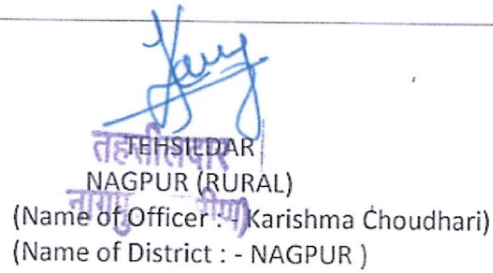 तहसीलदार
TEHSILDAR
NAGPUR (RURAL)
(Name of Officer : - Karishma Choudhari)
(Name of District : - NAGPUR )